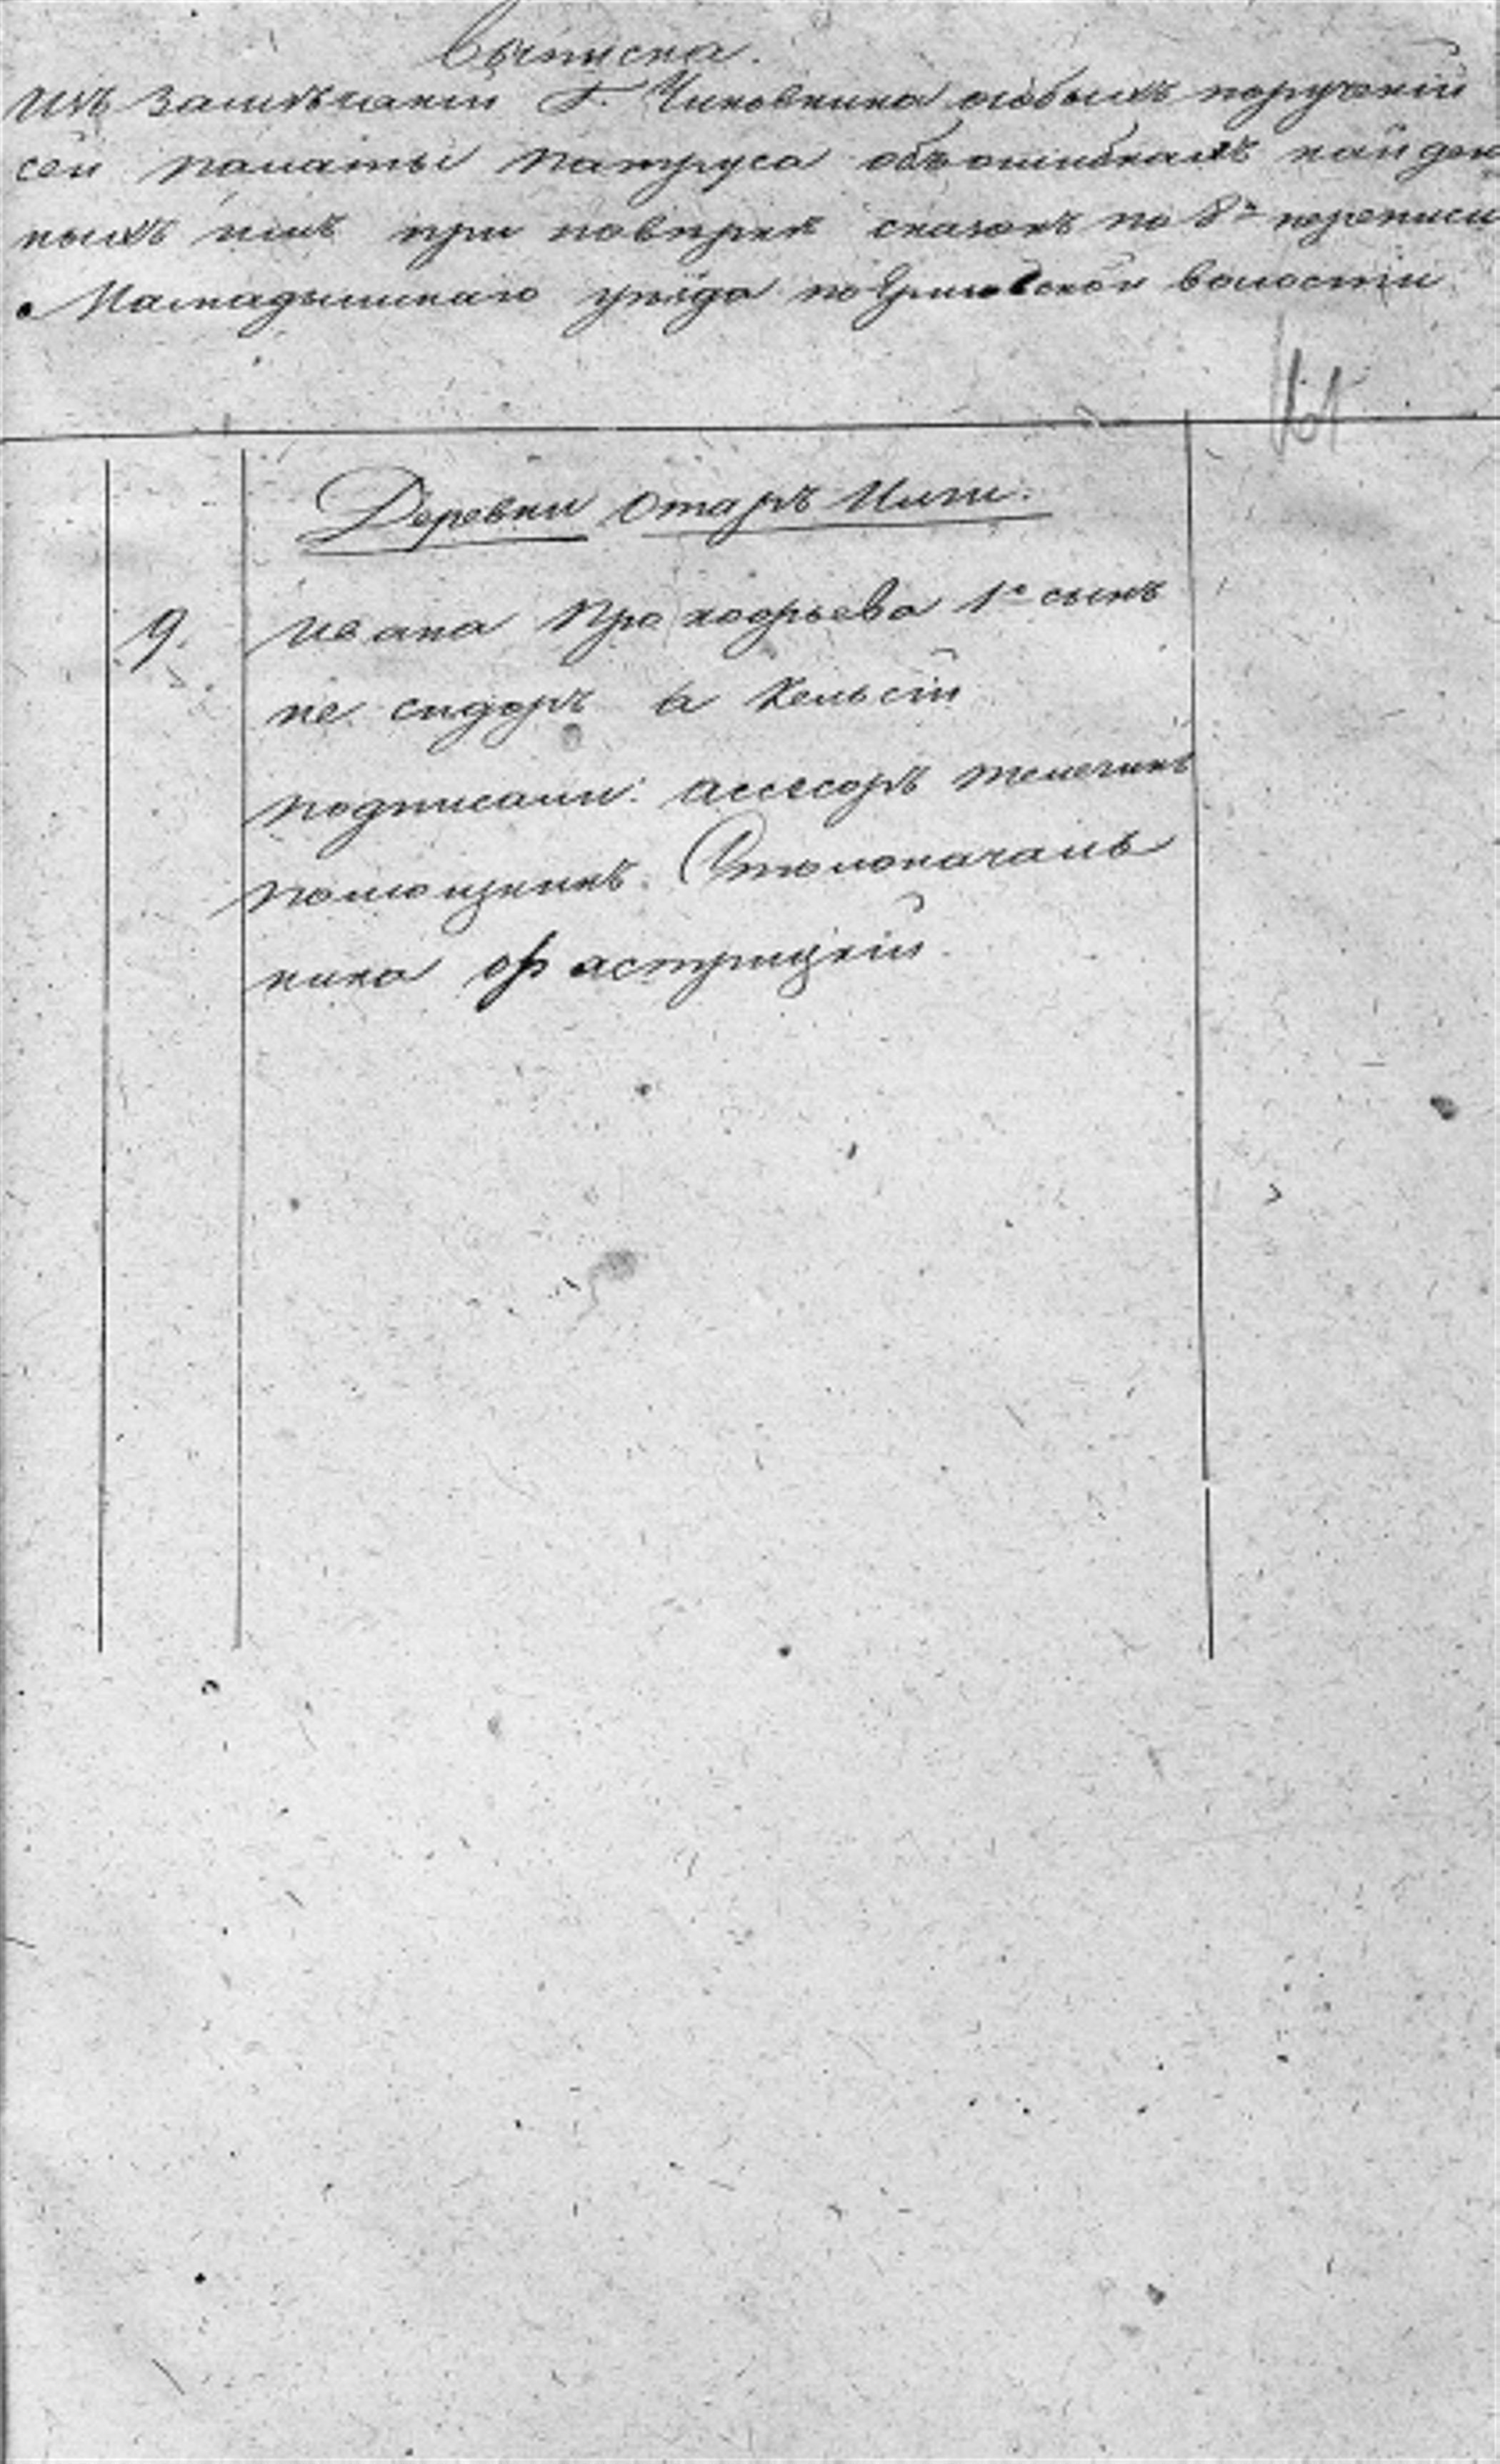 Выписка.
Изъ Замѣчаній Г. Чиновника особыхъ порученій
сей палаты Патруса объ ошибкахъ найден
ныхъ имъ при повѣркѣ сказокъ по 8й переписи
Мамадышскаго уѣзда по волости
Деревни Отаръ
9. Ивана 1й сынъ
не сидоръ а Кельсій
подписали: ассесоръ
помощникъ Столоначаль
ника